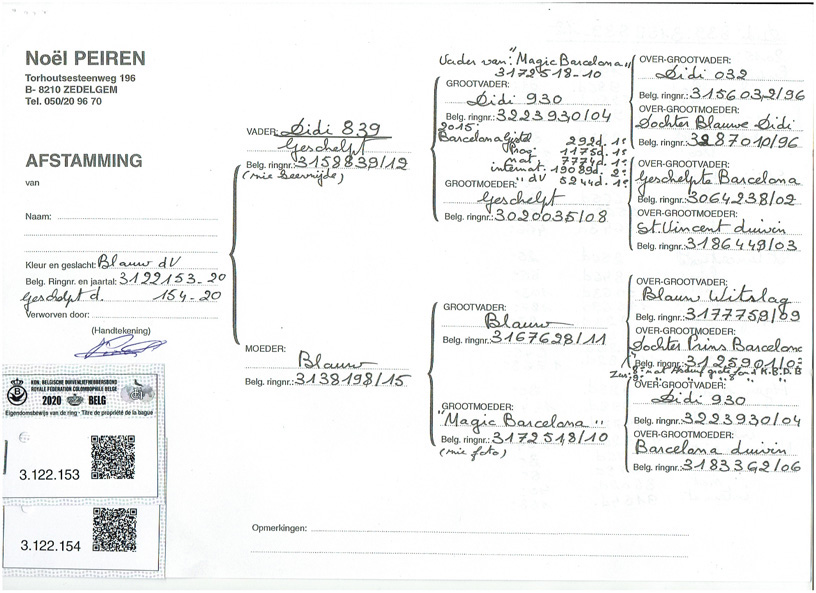 Noël PEIREN
Torhoutsesteenweg 196
B- 8210 ZEDELGEM
Tel. 050/20 96 70
AFSTAMMING
van
Naam:
Kleur en geslacht: Blauw dV
Belg. Ringnr. en jaartal: 3122153-20
Geschelpt d. 154-20
Verworven door:
(Handtekening)
KON. BELGISCHE DUIVENLIEFHEBBERSBOND
ROYALE FEDERATION COLOMBOPHILE BELGE
2020 BELG
Eigendomsbewijs van de ring - Titre de propriété de la bague
3.122.153
3.122.154
VADER: Didi 839
Geschelpt
Belg. ringnr.: 3158839/12
MOEDER:
Blauw
Belg. ringnr.: 3138198/15
Vader van: "Magic Barcelona"
3172518-10
GROOTVADER:
Didi 930
Belg. ringnr.: 3223930/04
2015:
Barcelona Gistel 292d. 1e
1175d. 1e
nat 7774d. 1e
internat. 19089d. 2e
" dV 5244d. 1e
GROOTMOEDER:
Geschelpt
Belg. ringnr.: 3020035/08
GROOTVADER:
Blauw
Belg. ringnr.: 3167628/11
GROOTMOEDER:
"Magic Barcelona"
Belg. ringnr.: 3172518/10
(zie foto)
OVER-GROOTVADER:
Didi 032
Belg. ringnr.: 3156032/96
OVER-GROOTMOEDER:
Dochter Blauwe Didi
Belg. ringnr.: 3287010/96
OVER-GROOTVADER:
Geschelpte Barcelona
Belg. ringnr.: 3064238/02
OVER-GROOTMOEDER:
St. Vincent duivin
Belg. ringnr.: 3186449/03
OVER-GROOTVADER:
Blauw Witslag
Belg. ringnr.: 3177759/09
OVER-GROOTMOEDER:
Dochter Prins Barcelona
Belg. ringnr.: 3125901/0
K.B.D.B
OVER-GROOTVADER:
Didi 930
Belg. ringnr.: 3223930/04
OVER-GROOTMOEDER:
Barcelona duivin
Belg. ringnr.: 3183362/06
Opmerkingen: